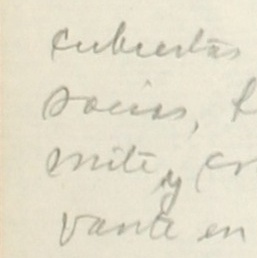 cubiertas
socios,
mite y
vante en